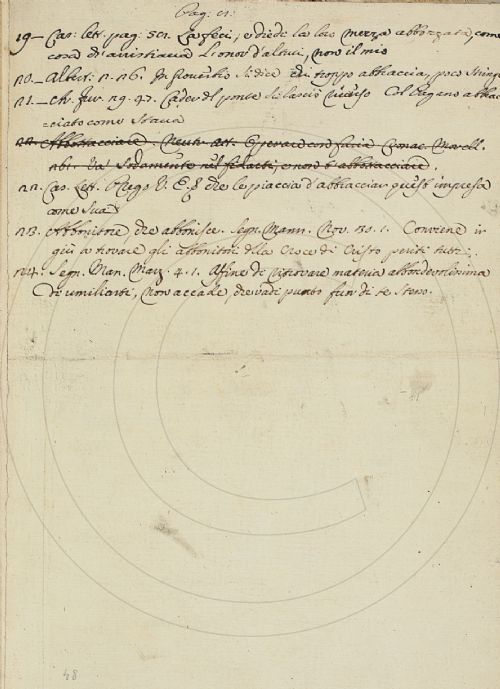 Pag: 21:
19 — Cas. lett. pag. 521. Lasfeci, e diede la loro mezza abbozzata, come
cosa di avistiava L'onor d'altrui, non il mio
20. — Albert. 2. 26. In proverbio si dice Chi troppo abbraccia, poco stringe
21. — Ch. fur. 29. 47. Cader del ponte si lasciò riverso Col Pagano abbra-
cciato come stava
22. Abbottacciare. Neutr. att. Operare con furia Cronac. Morell.
261. Va sodamente nel fatti, e non t'abbottacciare.
22. Cas. Lett. Priego V. E. che le piaccia d'abbracciar questa impresa
come sua
23. Abbonitore che abbonisce. Segn. Mann. Nov. 30. 1. Conviene ir
giù a trovare gli abbonitori della Croce di Cristo periti tutti.
24. Segn. Man. Marz. 4. 1. Affine di ritrovare materia abbondevolissima
di umiliarti, non accade, che vadi punto fuori di te stesso.
48